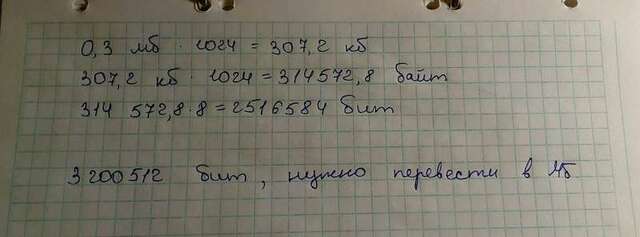 0,3 мб · 1024 = 307,2 кб
307,2 кб · 1024 = 314572,8 байт
314 572,8 · 8 = 2516584 бит
3200512 бит, нужно перевести в Мб